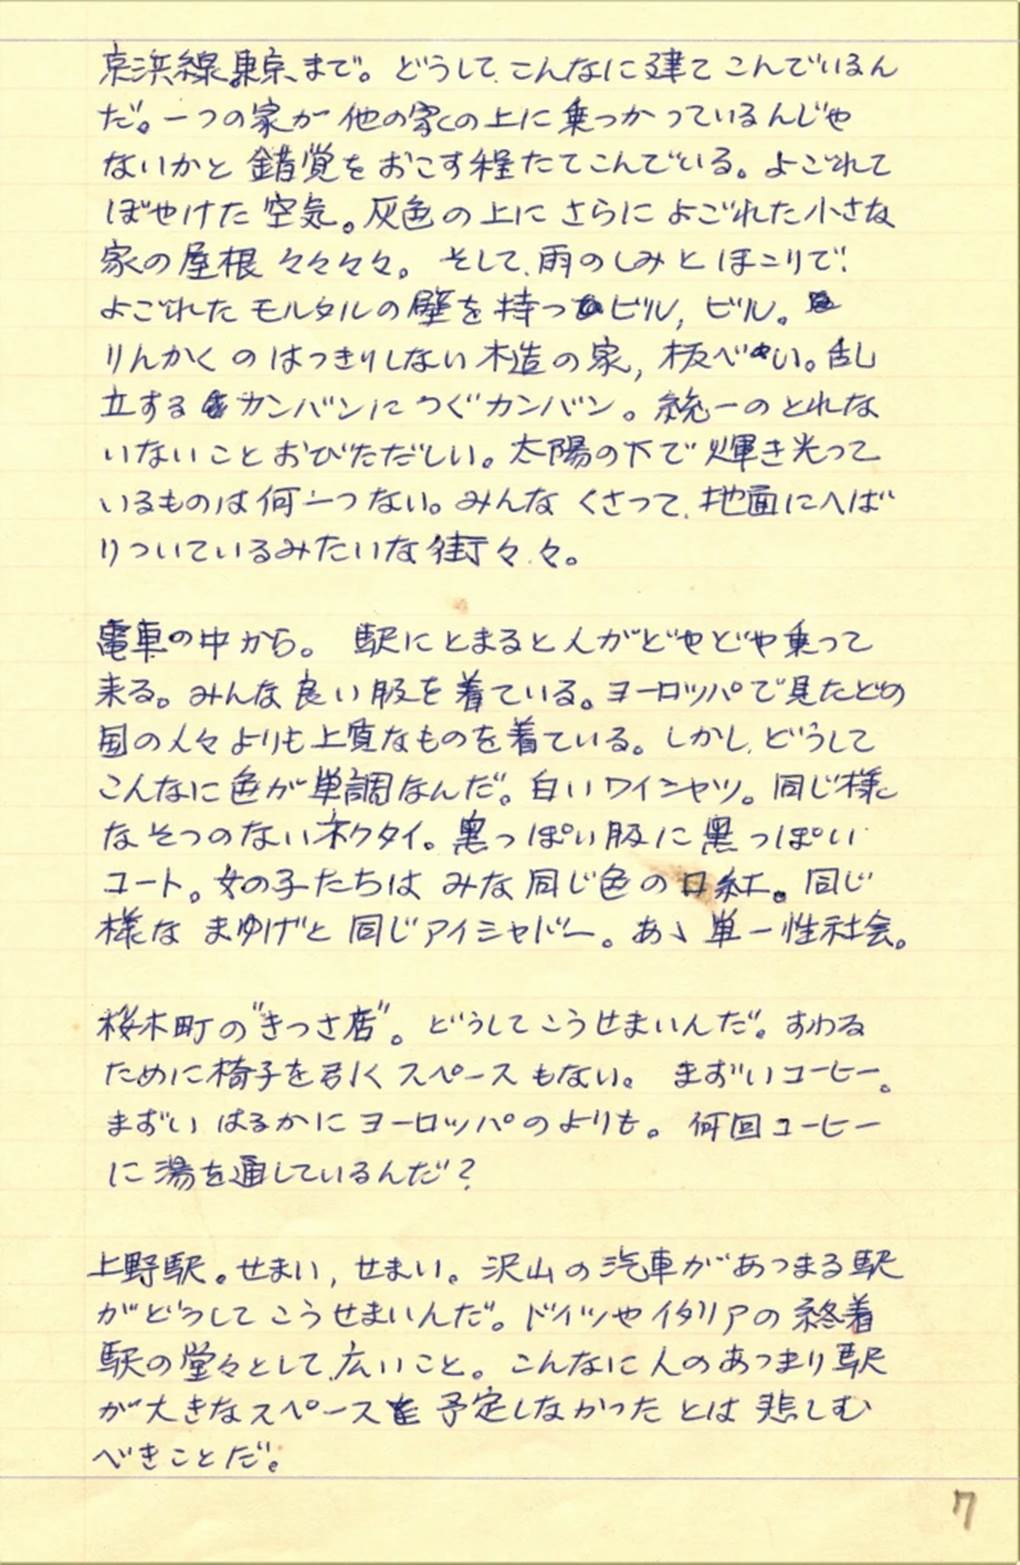 京浜線東京まで。どうして、こんなに建てこんでいるん
だ。一つの家が他の家の上に乗っかっているんじゃ
ないかと錯覚をおこす程たてこんでいる。よごれて
ぼやけた空気。灰色の上にさらによごれた小さな
家の屋根々々々々。そして、雨のしみとほこりで、
よごれたモルタルの壁を持つビル, ビル。
りんかくのはっきりしない木造の家, 板べい。乱
立するカンバンにつぐカンバン。統一のとれな
いないことおびただしい。太陽の下で輝き光って
いるものは何一つない。みんなくさって、地面にへば
りついているみたいな街々々。
電車の中から。駅にとまると人がどやどや乗って
来る。みんな良い服を着ている。ヨーロッパで見たどの
国の人々よりも上質なものを着ている。しかし、どうして
こんなに色が単調なんだ。白いワイシャツ。同じ様
なそつのないネクタイ。黒っぽい服に黒っぽい
コート。女の子たちはみな同じ色の口紅。同じ
様なまゆげと同じアイシャドー。あゝ単一性社会。
桜木町の"きっさ店"。どうしてこうせまいんだ。すわる
ために椅子を引くスペースもない。まずいコーヒー。
まずいはるかにヨーロッパのよりも。何回コーヒー
に湯を通しているんだ?
上野駅。せまい, せまい。沢山の汽車があつまる駅
がどうしてこうせまいんだ。ドイツやイタリアの終着
駅の堂々として、広いこと。こんなに人のあつまり駅
が大きなスペースを予定しなかったとは悲しむ
べきことだ。
7